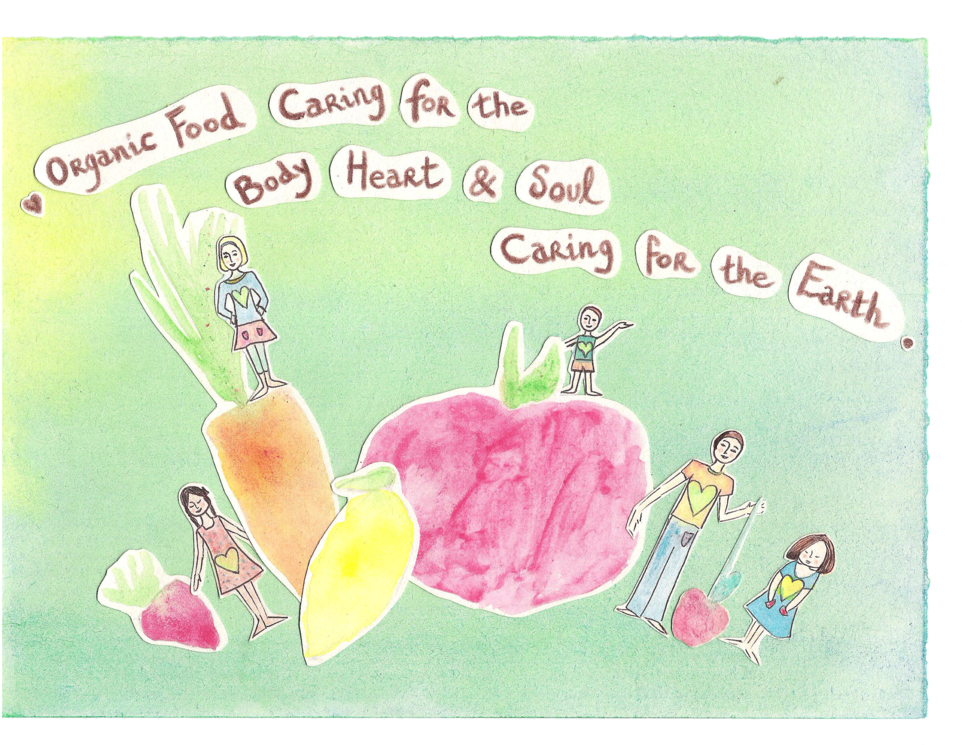 Organic Food Caring for the
Body Heart & Soul
Caring for the Earth